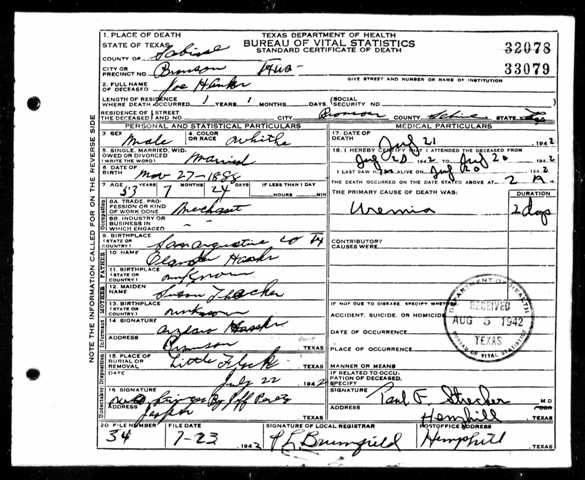 1. PLACE OF DEATH
STATE OF TEXAS
COUNTY OF Sabine
CITY OR
PRECINCT NO. Bronson Texas
2. FULL NAME
OF DECEASED Joe
TEXAS DEPARTMENT OF HEALTH
BUREAU OF VITAL STATISTICS
STANDARD CERTIFICATE OF DEATH
32078
33079
GIVE STREET AND NUMBER OR NAME OF INSTITUTION
LENGTH OF RESIDENCE
WHERE DEATH OCCURRED YEARS MONTHS DAYS
SOCIAL
SECURITY NO.
RESIDENCE OF STREET
THE DECEASED AND NO. CITY Bronson COUNTY Sabine STATE Texas
PERSONAL AND STATISTICAL PARTICULARS
3. SEX
Male
4. COLOR
OR RACE
White
5. SINGLE, MARRIED, WID-
OWED OR DIVORCED
(WRITE THE WORD) Married
6. DATE OF
BIRTH Nov 27-1888
7. AGE YEARS MONTHS DAYS IF LESS THAN 1 DAY
53 7 24 HOURS MIN.
8A. TRADE, PRO-
FESSION OR KIND
OF WORK DONE Merchant
8B. INDUSTRY OR
BUSINESS IN
WHICH ENGAGED -
9. BIRTHPLACE
(STATE OR
COUNTRY) San Augustine Co Tx
10. NAME
11. BIRTHPLACE
(STATE OR
COUNTRY) unknown
12. MAIDEN
NAME Susan Thacker
13. BIRTHPLACE
(STATE OR
COUNTRY) unknown
14. SIGNATURE
ADDRESS Bronson TEXAS
15. PLACE OF
BURIAL OR
REMOVAL Little Flock TEXAS
DATE July 22 1942
16. SIGNATURE
ADDRESS Jasper TEXAS
20. FILE NUMBER FILE DATE
34 7-23 1942
SIGNATURE OF LOCAL REGISTRAR
Brumfield
POSTOFFICE ADDRESS
Hemphill TEXAS
MEDICAL PARTICULARS
17. DATE OF
DEATH July 21 1942
18. I HEREBY CERTIFY THAT I ATTENDED THE DECEASED FROM
1942 TO July 20 1942
I LAST SAW HIM ALIVE ON July 20 1942
THE DEATH OCCURRED ON THE DATE STATED ABOVE AT 2 A M.
THE PRIMARY CAUSE OF DEATH WAS: DURATION
Uremia 2 days
CONTRIBUTORY
CAUSES WERE:
IF NOT DUE TO DISEASE, SPECIFY WHETHER
ACCIDENT, SUICIDE, OR HOMICIDE
DATE OF OCCURRENCE
PLACE OF OCCURRENCE
MANNER OR MEANS
IF RELATED TO OCCU-
PATION OF DECEASED,
SPECIFY
SIGNATURE Paul F. Strecker M D
ADDRESS Hemphill TEXAS
DEPARTMENT OF HEALTH
RECEIVED
AUG 5 1942
TEXAS
BUREAU OF VITAL STATISTICS
NOTE THE INFORMATION CALLED FOR ON THE REVERSE SIDE
FATHER
MOTHER
Informant
Disposition
Undertaker